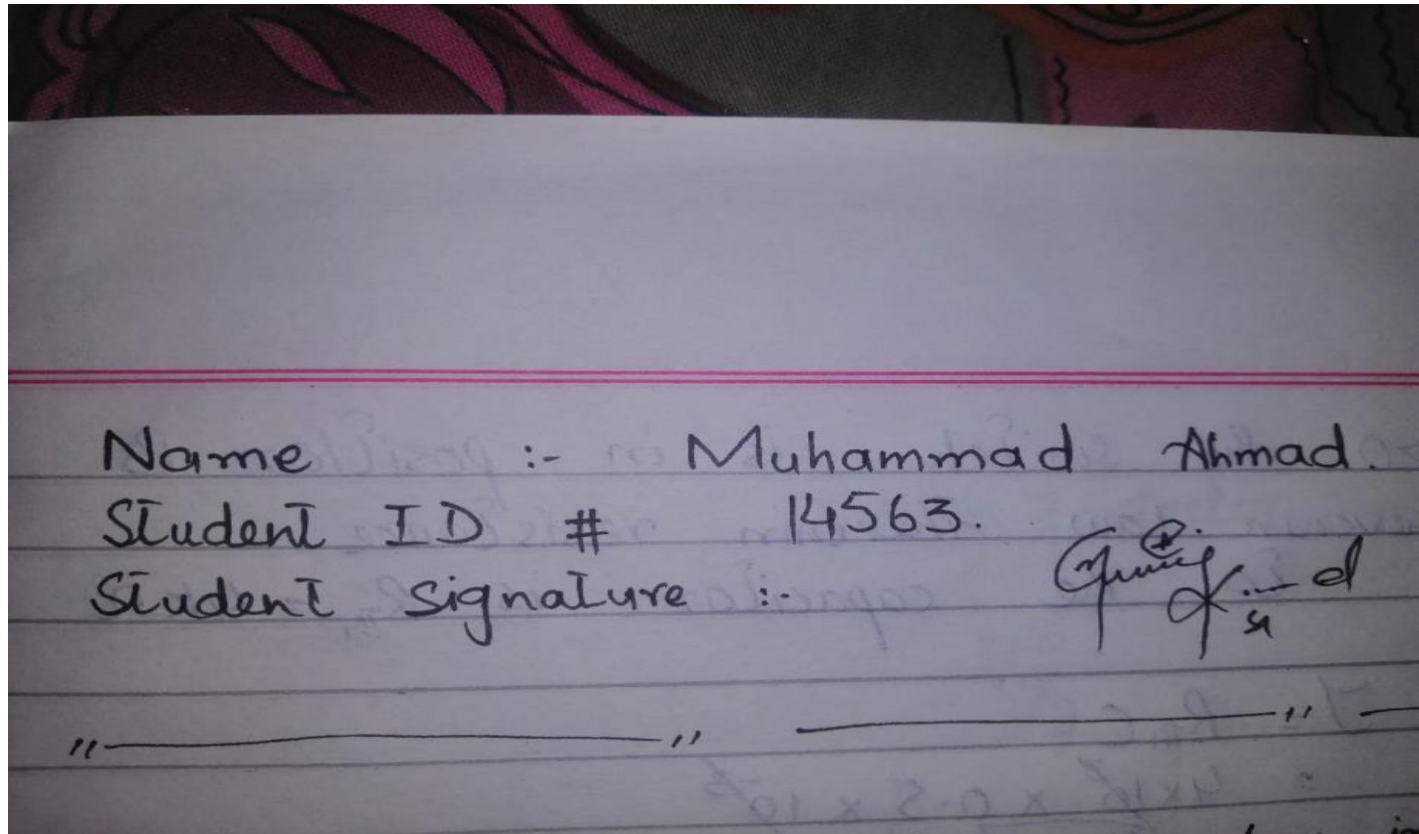 Name :- Muhammad Ahmad.
Student ID # 14563.
Student Signature :-